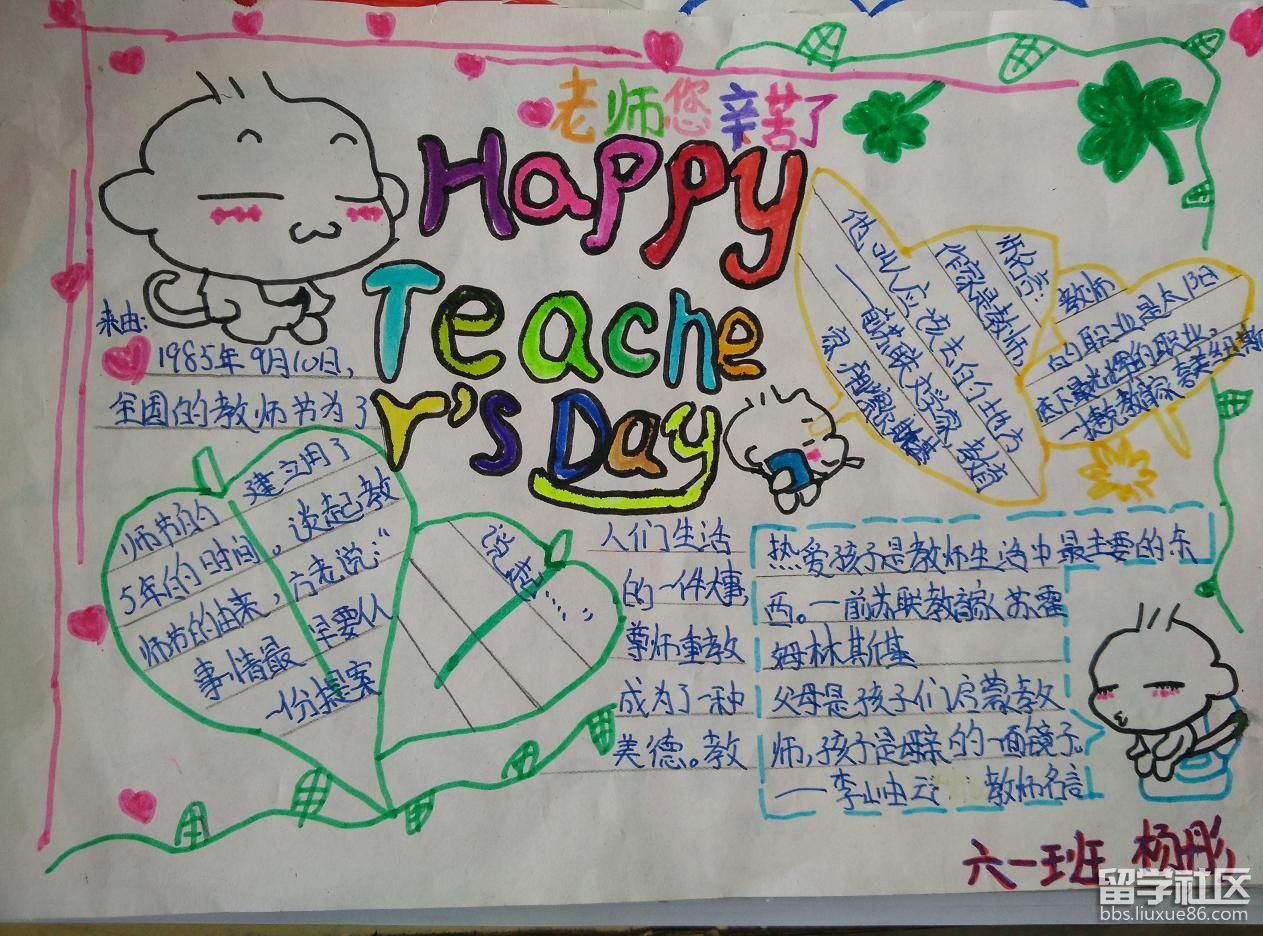 老师您辛苦了
Happy
Teache
r's Day
来由:
1985年9月10日,
全国的教师节为了
人们生活
的一件大事,
尊师重教
成为了一种
美德。教
师节的
建立用了
5年的时间,谈起教
师节的由来,方老说:“
事情最早要从
一份提案
说起……”
师名言:
作家是教师,
他叫人应该去的地方
——前苏联文学家 教育
教师
的职业是太阳
底下最光辉的职业。
热爱孩子是教师生活中最主要的东
西。一前苏联教育家苏霍
姆林斯基
父母是孩子们启蒙教
师,孩子是母亲的一面镜子.
——李山由云 教师名言
六一班 杨彤
留学社区
bbs.liuxue86.com